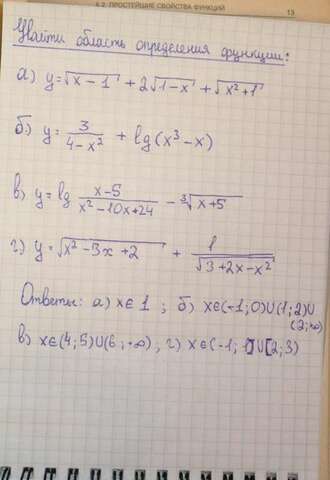 4.2. ПРОСТЕЙШИЕ СВОЙСТВА ФУНКЦИЙ 13
Найти область определения функции:
а) y=√(x-1) + 2√(1-x) + √(x²+1)
б) y= 3/(4-x²) + lg(x³-x)
в) y=lg (x-5)/(x²-10x+24) - ³√(x+5)
г) y=√(x²-3x+2) + 1/√(3+2x-x²)
Ответы: а) x∈1 ; б) x∈(-1;0)∪(1;2)∪
(2;∞)
в) x∈(4;5)∪(6;+∞); г) x∈(-1;1]∪[2;3)